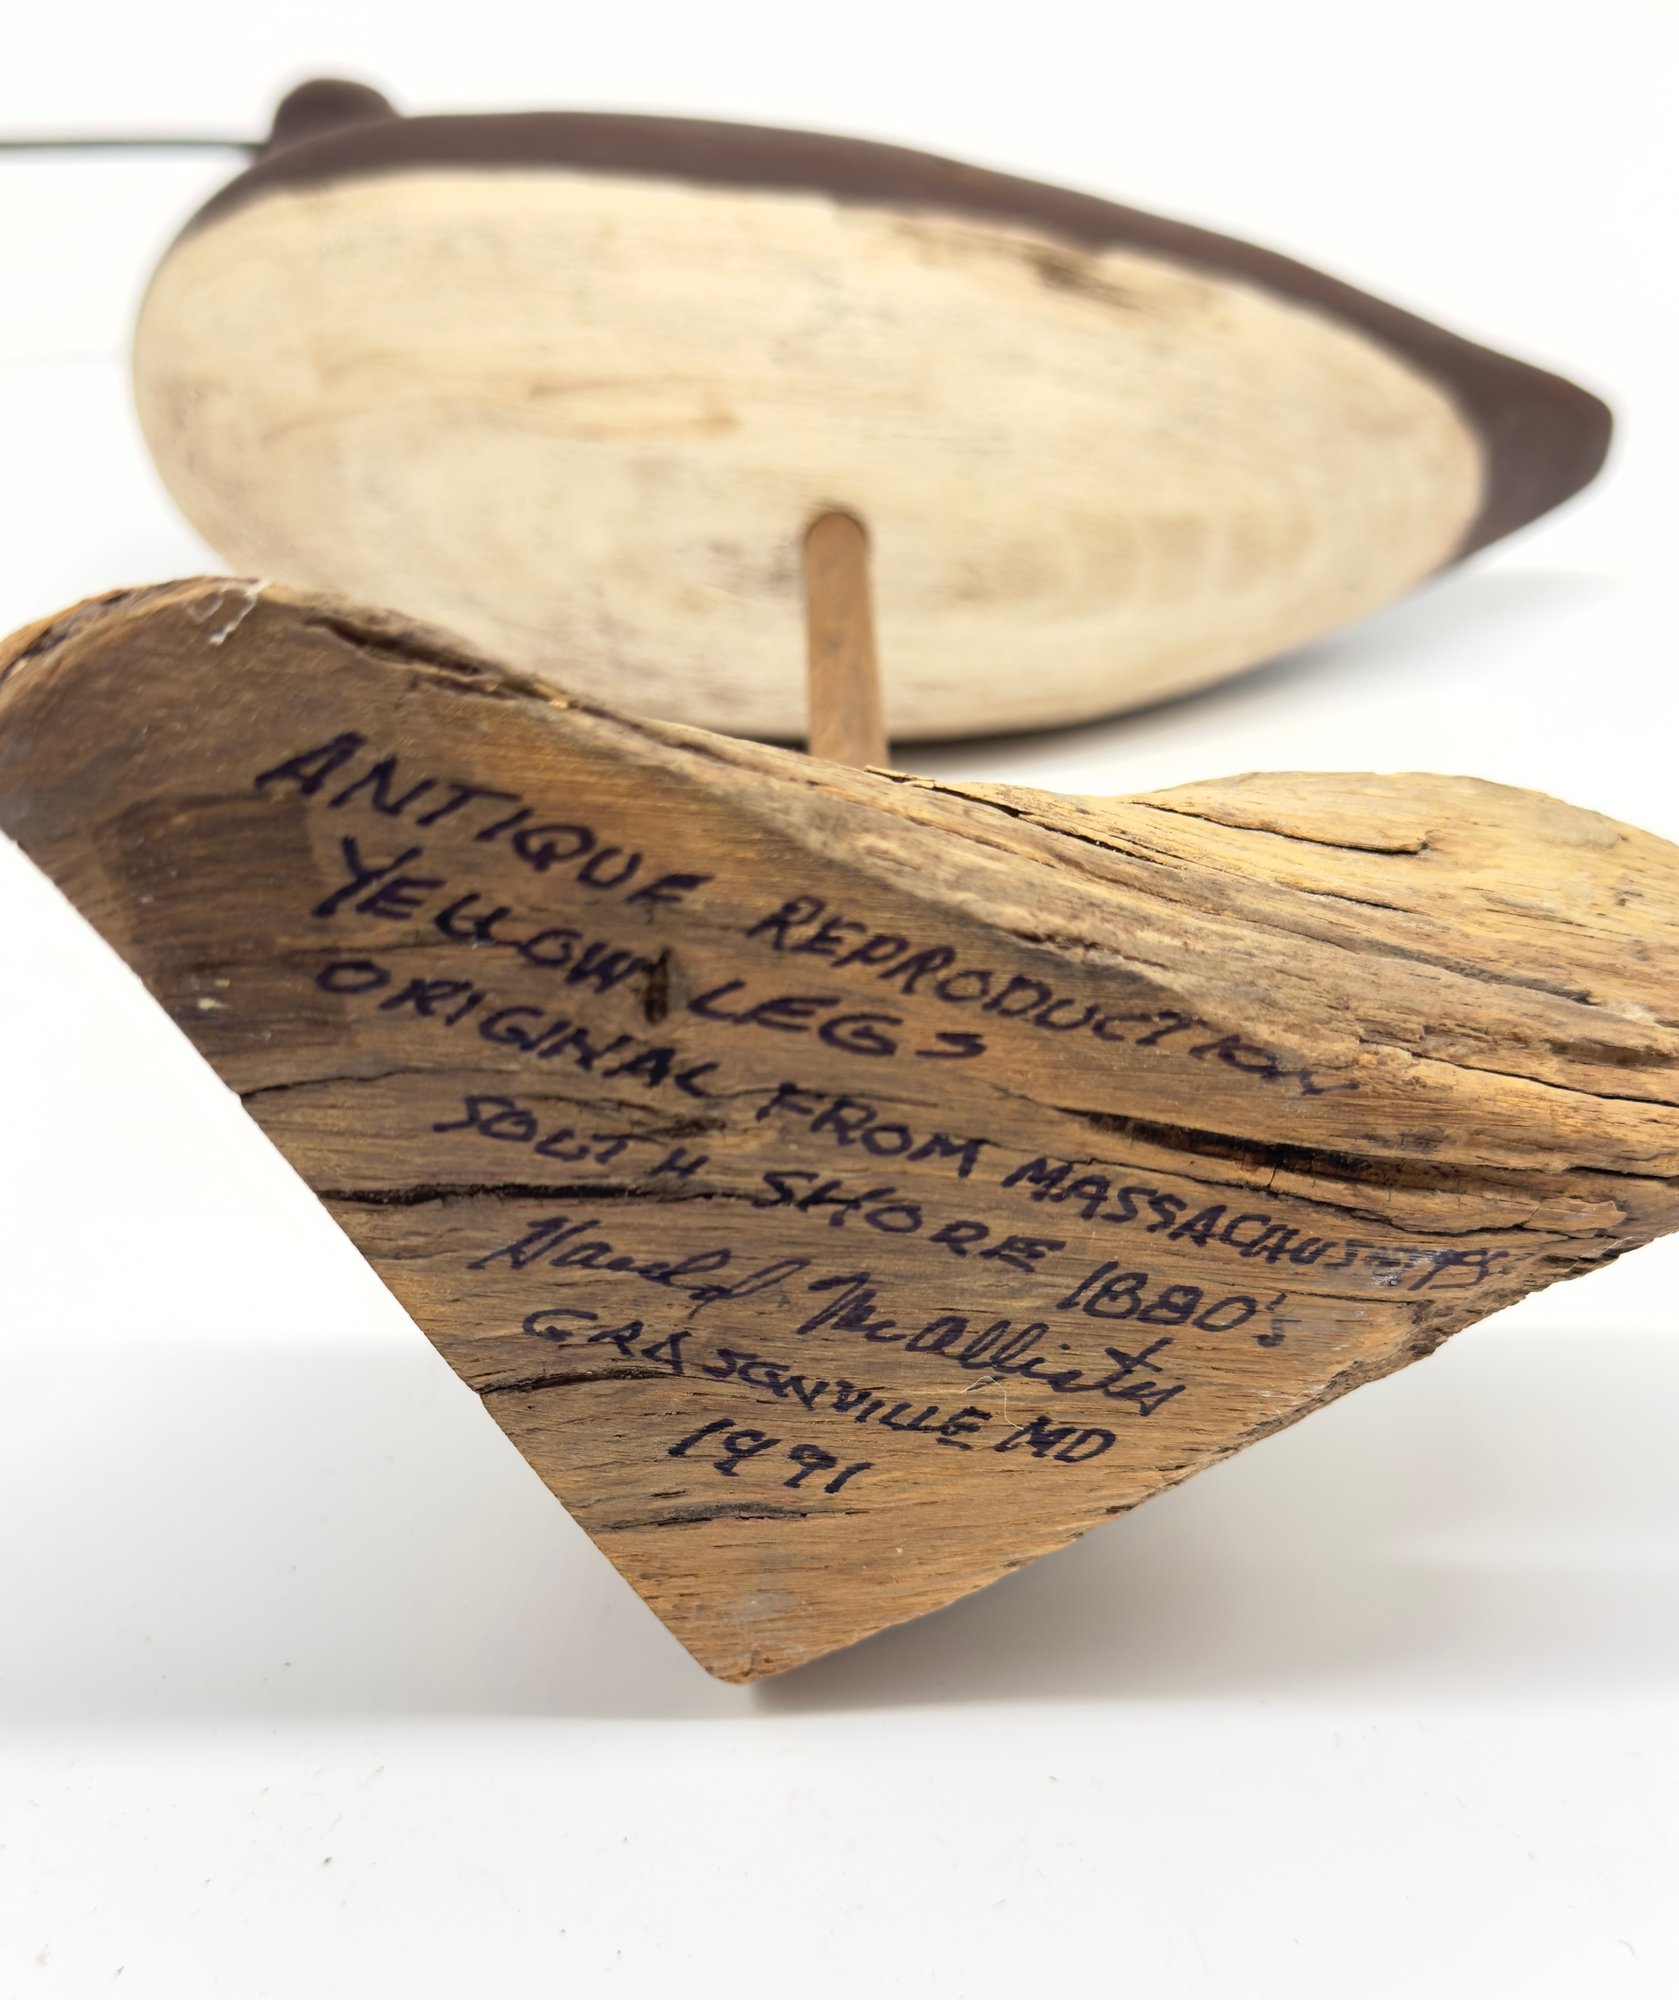 ANTIQUE REPRODUCTION
YELLOW LEGS
ORIGINAL FROM MASSACHUSETTS
SOUTH SHORE 1880's
Harold McAllister
GRASONVILLE MD
1991